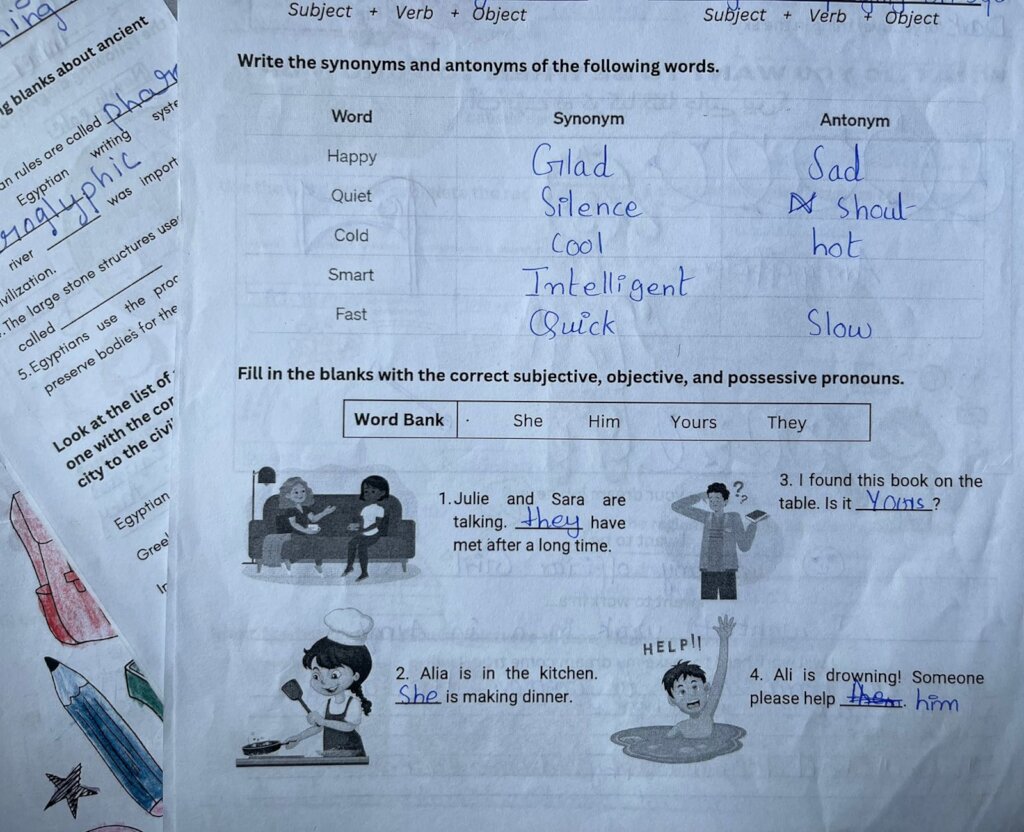 ning
ng blanks about ancient
an rules are called phar
Egyptian writing syste
roglyphic was import
river
ivilization.
.The large stone structures use
called
5.Egyptians use the proc
preserve bodies for the
Look at the list of
one with the cor
city to the civi
Egyptian
Gree
Subject + Verb + Object
Subject + Verb + Object
Write the synonyms and antonyms of the following words.
Word Synonym Antonym
Happy Glad Sad
Quiet Silence Shout
Cold cool hot
Smart Intelligent
Fast Quick Slow
Fill in the blanks with the correct subjective, objective, and possessive pronouns.
Word Bank She Him Yours They
1.Julie and Sara are
talking. they have
met after a long time.
3. I found this book on the
table. Is it Yours?
2. Alia is in the kitchen.
She is making dinner.
HELP!!
4. Ali is drowning! Someone
please help them. him